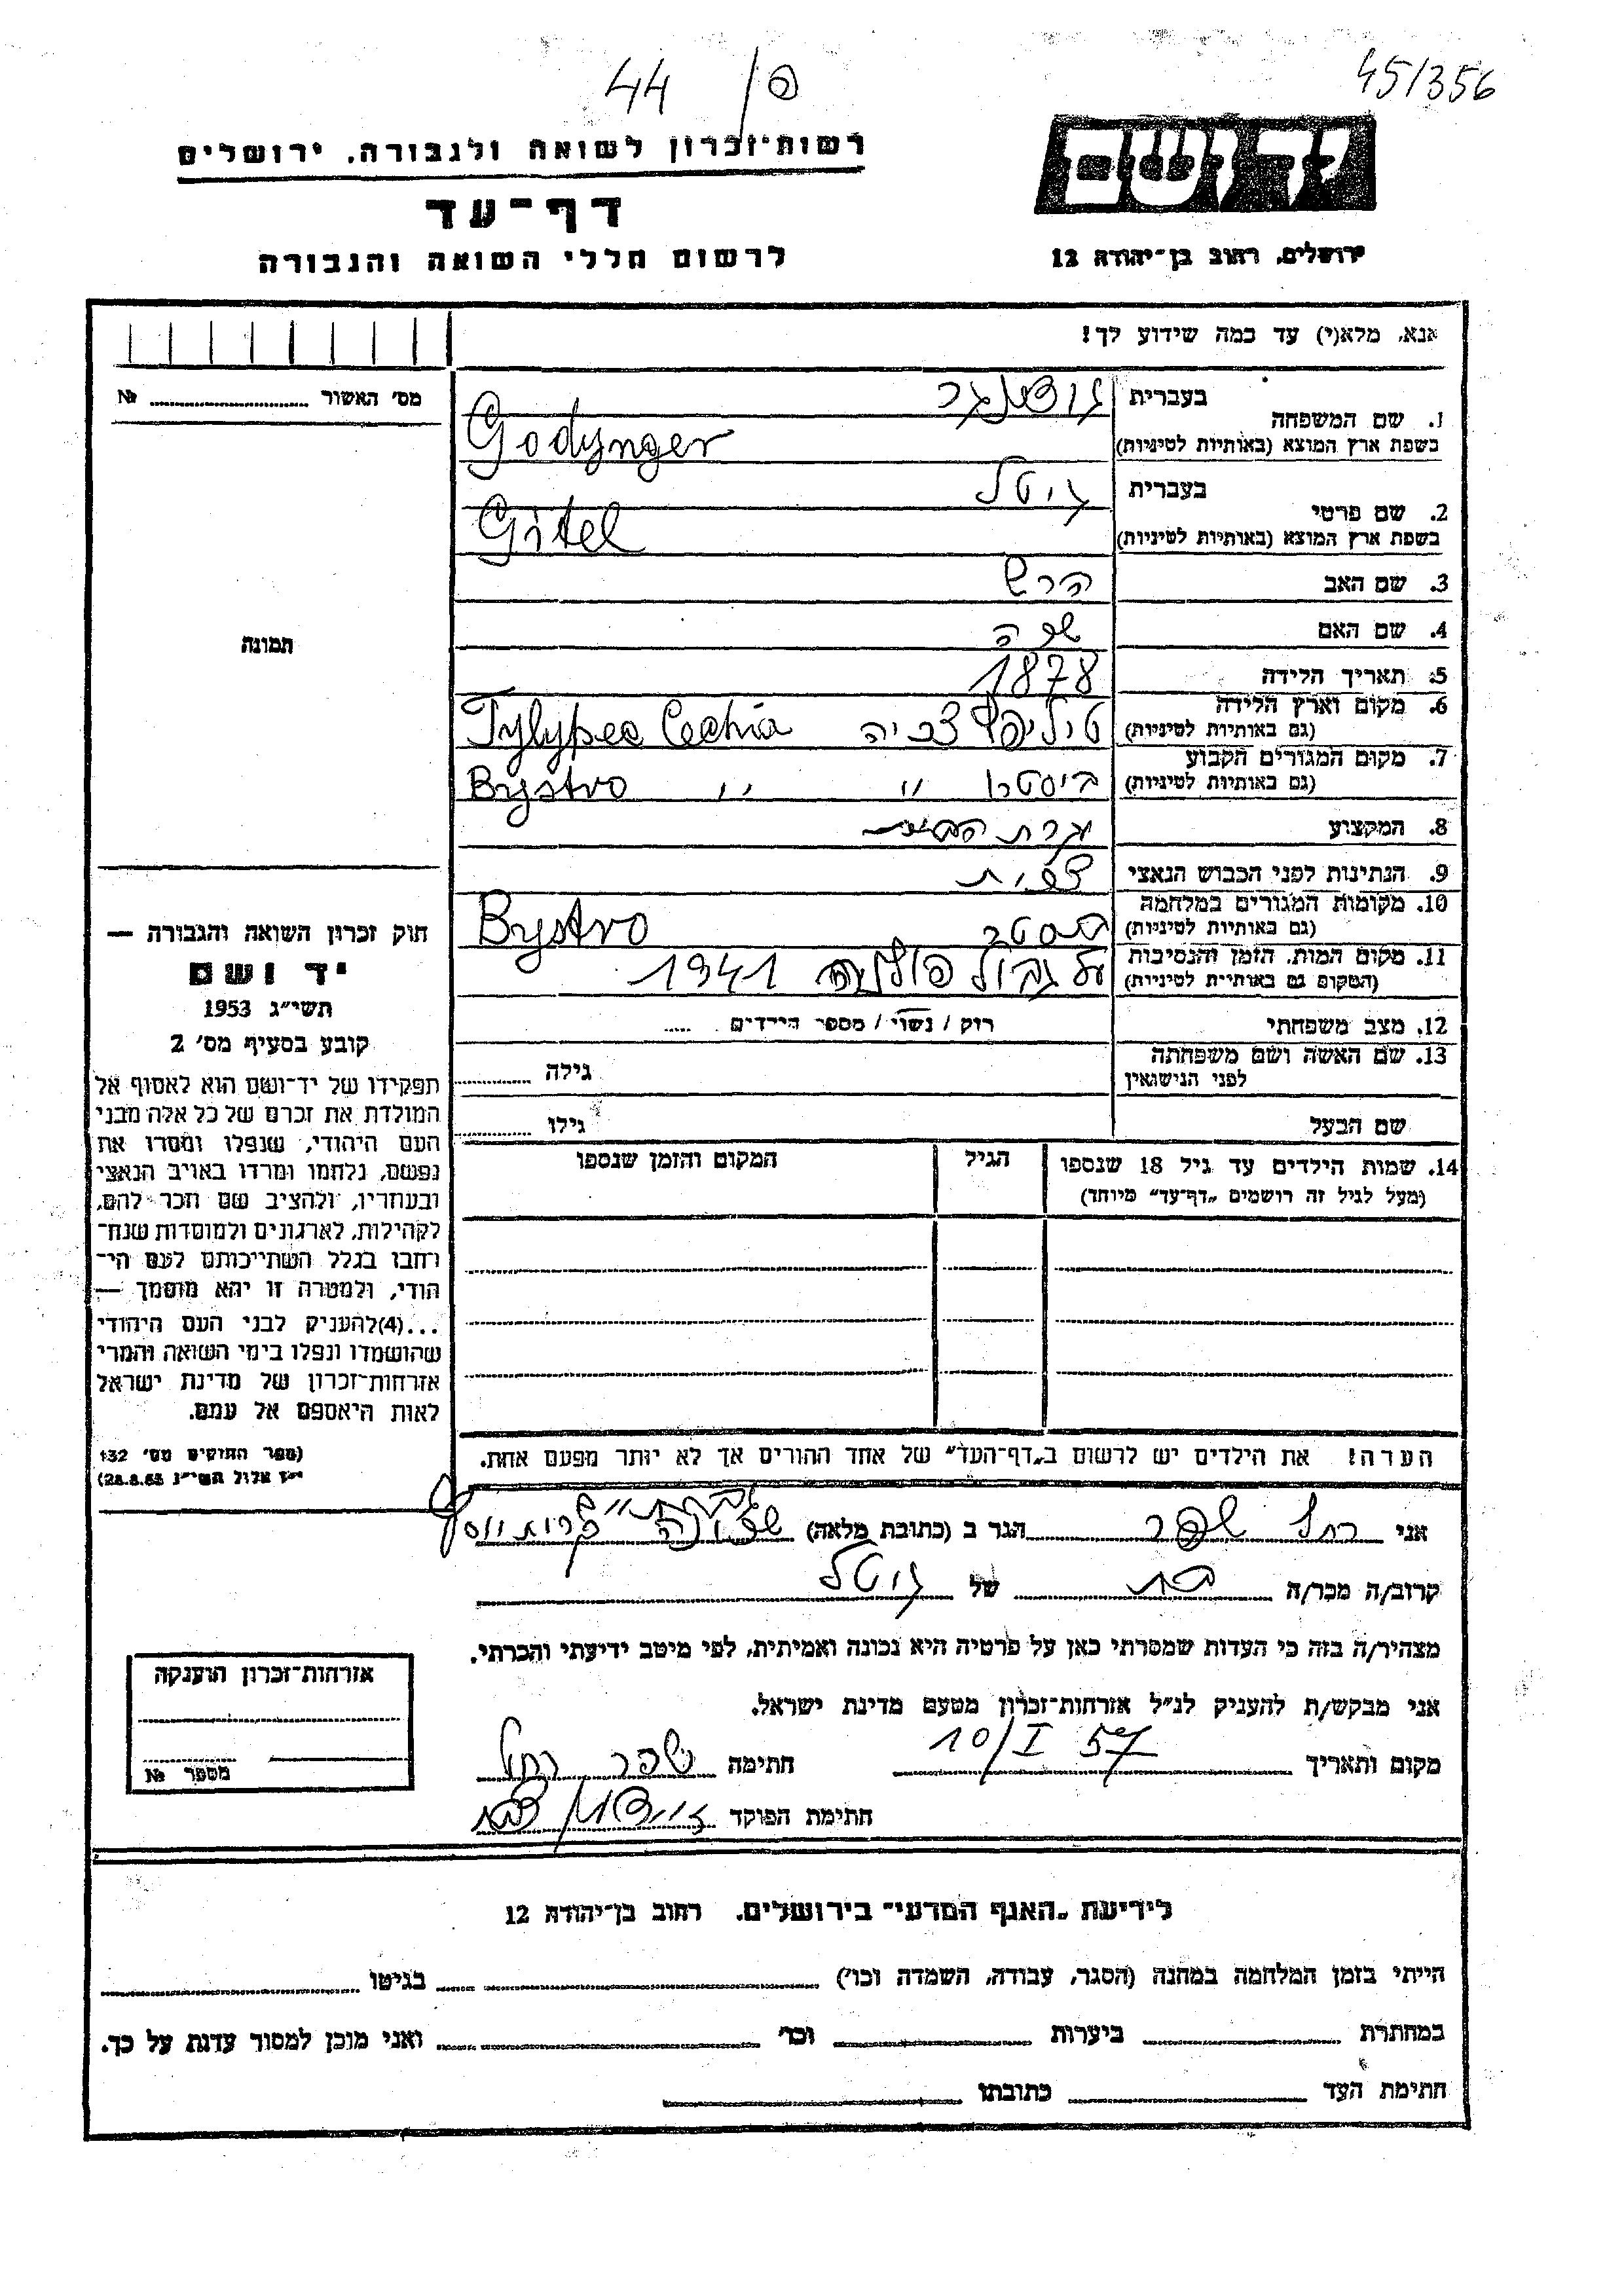 44 / פ
45/356
רשות־זכרון לשואה ולגבורה, ירושלים
דף־עד
לרשום חללי השואה והגבורה
יד ושם
ירושלים, רחוב בן־יהודה 12
אנא, מלא(י) עד כמה שידוע לך!
מס' האשור №
תמונה
1. שם המשפחה
בעברית
בשפת ארץ המוצא (באותיות לטיניות) Godynger
2. שם פרטי
בעברית גיטל
בשפת ארץ המוצא (באותיות לטיניות) Gitel
3. שם האב הרש
4. שם האם
5. תאריך הלידה 1878
6. מקום וארץ הלידה
(גם באותיות לטיניות) Tylypec Cechia
7. מקום המגורים הקבוע
(גם באותיות לטיניות) ביסטרו " Bystro " "
8. המקצוע עקרת הבית
9. הנתינות לפני הכבוש הנאצי צ'כית
10. מקומות המגורים במלחמה
(גם באותיות לטיניות) Bystro
11. מקום המות, הזמן והנסיבות
(המקום גם באותיות לטיניות) על גבול פולניה 1941
12. מצב משפחתי רוק / נשוי / מספר הילדים .....
13. שם האשה ושם משפחתה
לפני הנישואין
גילה
שם הבעל גילו
14. שמות הילדים עד גיל 18 שנספו
(מעל לגיל זה רושמים „דף־עד" מיוחד)
הגיל
המקום והזמן שנספו
הערה! את הילדים יש לרשום ב„דף־העד" של אחד ההורים אך לא יותר מפעם אחת.
חוק זכרון השואה והגבורה —
יד ושם
תשי"ג 1953
קובע בסעיף מס' 2
תפקידו של יד־ושם הוא לאסוף אל
המולדת את זכרם של כל אלה מבני
העם היהודי, שנפלו ומסרו את
נפשם, נלחמו ומרדו באויב הנאצי
ובעוזריו, ולהציב שם וזכר להם,
לקהילות, לארגונים ולמוסדות שנח־
רחבו בגלל השתייכותם לעם הי־
הודי, ולמטרה זו יהא מוסמך —
...(4) להעניק לבני העם היהודי
שהושמדו ונפלו בימי השואה והמרי
אזרחות־זכרון של מדינת ישראל
לאות היאספם אל עמם.
(ספר החוקים מס' 132
י"ז אלול תשי"ג 28.8.53)
אני רחל שפר הגר ב (כתובת מלאה)
קרוב/ה מכר/ה בת של גיטל
מצהיר/ה בזה כי העדות שמסרתי כאן על פרטיה היא נכונה ואמיתית, לפי מיטב ידיעתי והכרתי.
אני מבקש/ת להעניק לנ"ל אזרחות־זכרון מטעם מדינת ישראל.
מקום ותאריך 10/I 57 חתימה שפר רחל
חתימת הפוקד
אזרחות־זכרון הוענקה
מספר №
לידיעת „האגף המדעי" בירושלים, רחוב בן־יהודה 12
הייתי בזמן המלחמה במחנה (הסגר, עבודה, השמדה וכו') בגיטו
במחתרת ביערות וכו' ואני מוכן למסור עדות על כך.
חתימת העד כתובתו